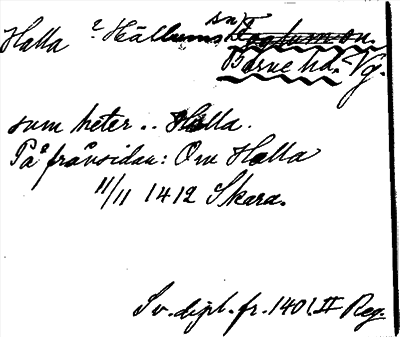 Halla ? Hällums sn Trökumsn.
Barne hd. Vg.
sum heter .. Halla.
På frånsidan: Om Halla
11/11 1412 Skara.
Sv. dipl. fr. 1401. II Reg.